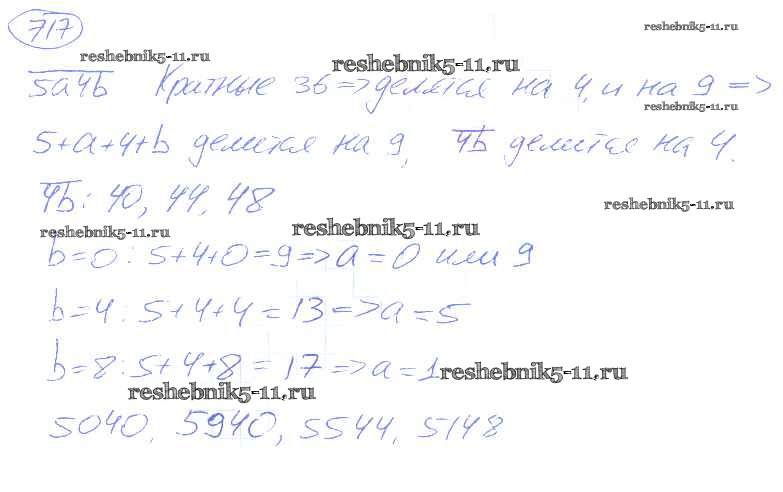 717
reshebnik5-11.ru
reshebnik5-11.ru
reshebnik5-11.ru
5a4b Кратные 36 => делятся на 4, и на 9 =>
reshebnik5-11.ru
5+a+4+b делится на 9, 4b делится на 4.
4b: 40, 44, 48
reshebnik5-11.ru
reshebnik5-11.ru
reshebnik5-11.ru
b=0: 5+4+0=9=>a=0 или 9
b=4: 5+4+4=13=>a=5
b=8: 5+4+8=17=>a=1
reshebnik5-11.ru
reshebnik5-11.ru
5040, 5940, 5544, 5148